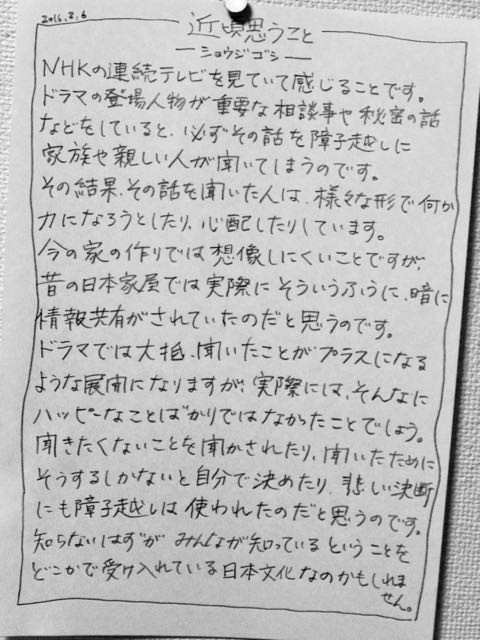 2016,2,6
近頃思うこと
ーショウジゴシー
NHKの連続テレビを見ていて感じることです。
ドラマの登場人物が重要な相談事や秘密の話
などをしていると、必ずその話を障子越しに
家族や親しい人が聞いてしまうのです。
その結果、その話を聞いた人は、様々な形で何か
力になろうとしたり、心配したりしています。
今の家の作りでは想像しにくいことですが、
昔の日本家屋では実際にそういうふうに、暗に
情報共有がされていたのだと思うのです。
ドラマでは大抵、聞いたことがプラスになる
ような展開になりますが、実際には、そんなに
ハッピーなことばかりではなかったことでしょう。
聞きたくないことを聞かされたり、聞いたために
そうするしかないと自分で決めたり、悲しい決断
にも障子越しは使われたのだと思うのです。
知らないはずが みんなが知っているということを
どこかで受け入れている日本文化なのかもしれま
せん。